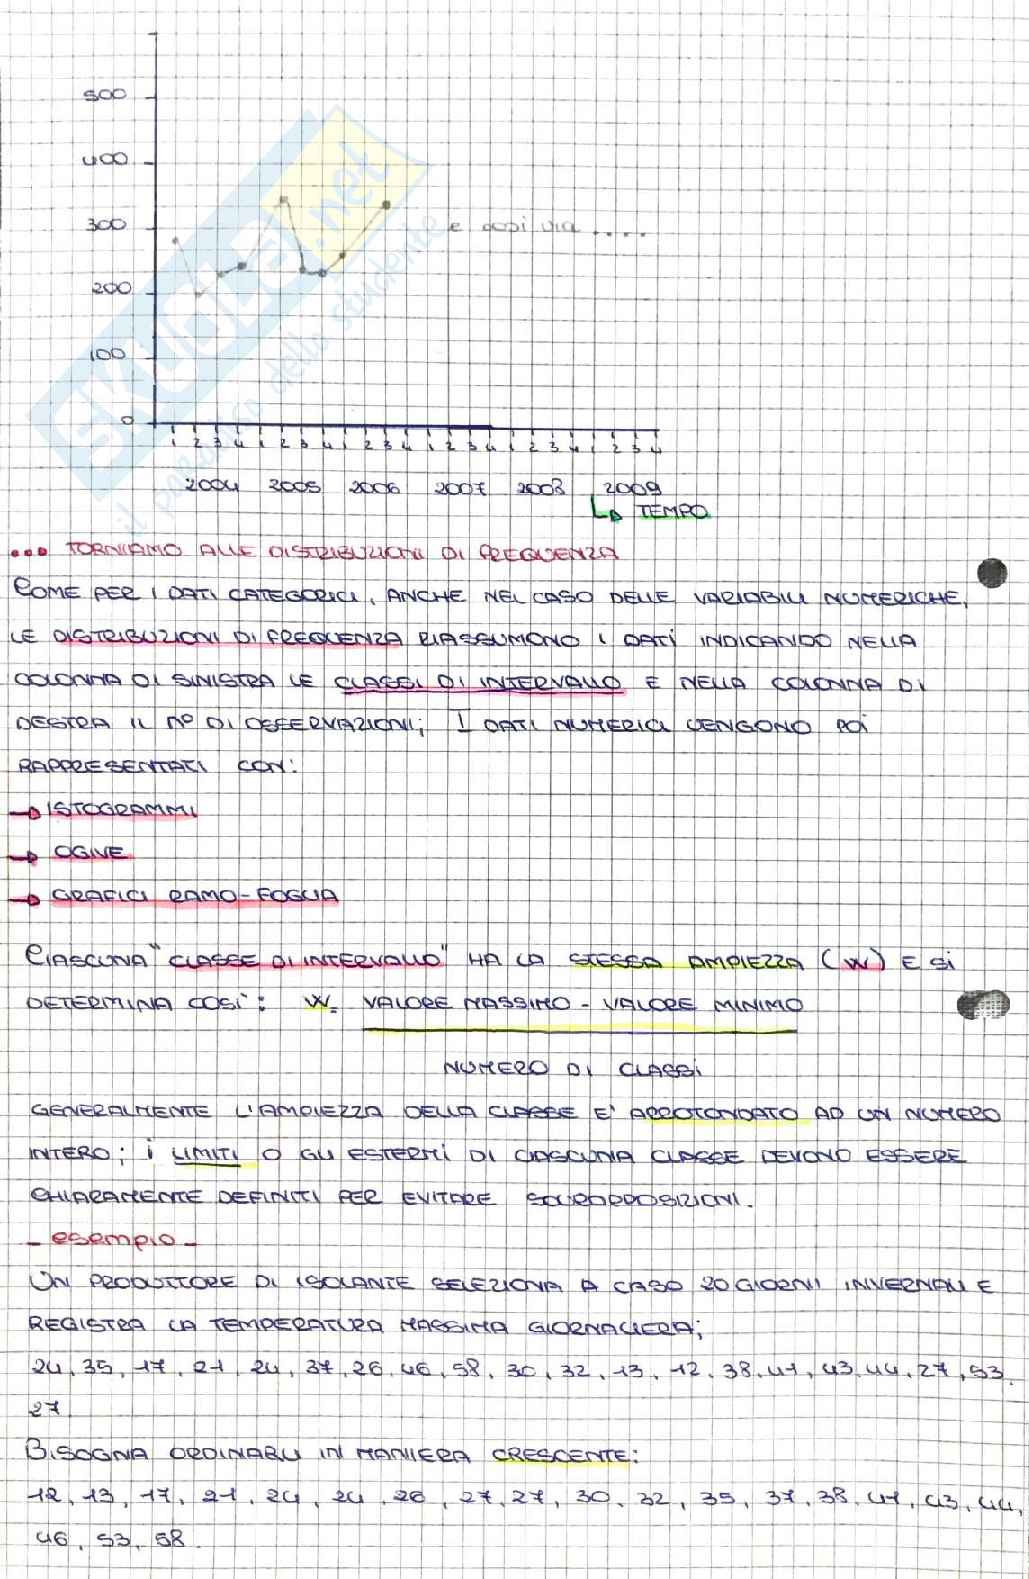 500
400
300
e così via ....
200
100
0
1 2 3 4 1 2 3 4 1 2 3 4 1 2 3 4 1 2 3 4 1 2 3 4
2004 2005 2006 2007 2008 2009
TEMPO
SKUOLA.net
il paradiso dello studente
... TORNIAMO ALLE DISTRIBUZIONI DI FREQUENZA
COME PER I DATI CATEGORICI, ANCHE NEL CASO DELLE VARIABILI NUMERICHE,
LE DISTRIBUZIONI DI FREQUENZA RIASSUMONO I DATI INDICANDO NELLA
COLONNA DI SINISTRA LE CLASSI DI INTERVALLO E NELLA COLONNA DI
DESTRA IL N° DI OSSERVAZIONI; I DATI NUMERICI VENGONO POI
RAPPRESENTATI CON:
→ ISTOGRAMMI
→ OGIVE
→ GRAFICI RAMO-FOGLIA
CIASCUNA "CLASSE DI INTERVALLO" HA LA STESSA AMPIEZZA (W) E SI
DETERMINA COSI': W= VALORE MASSIMO - VALORE MINIMO
NUMERO DI CLASSI
GENERALMENTE L'AMPIEZZA DELLA CLASSE E' ARROTONDATO AD UN NUMERO
INTERO; I LIMITI O GLI ESTERMI DI CIASCUNA CLASSE DEVONO ESSERE
CHIARAMENTE DEFINITI PER EVITARE SOVRAPPOSIZIONI.
- esempio -
UN PRODUTTORE DI ISOLANTE SELEZIONA A CASO 20 GIORNI INVERNALI E
REGISTRA LA TEMPERATURA MASSIMA GIORNALIERA;
24, 35, 17, 21, 24, 37, 26, 46, 58, 30, 32, 13, 12, 38, 41, 43, 44, 27, 53,
27.
BISOGNA ORDINARLI IN MANIERA CRESCENTE:
12, 13, 17, 21, 24, 24, 26, 27, 27, 30, 32, 35, 37, 38, 41, 43, 44,
46, 53, 58.